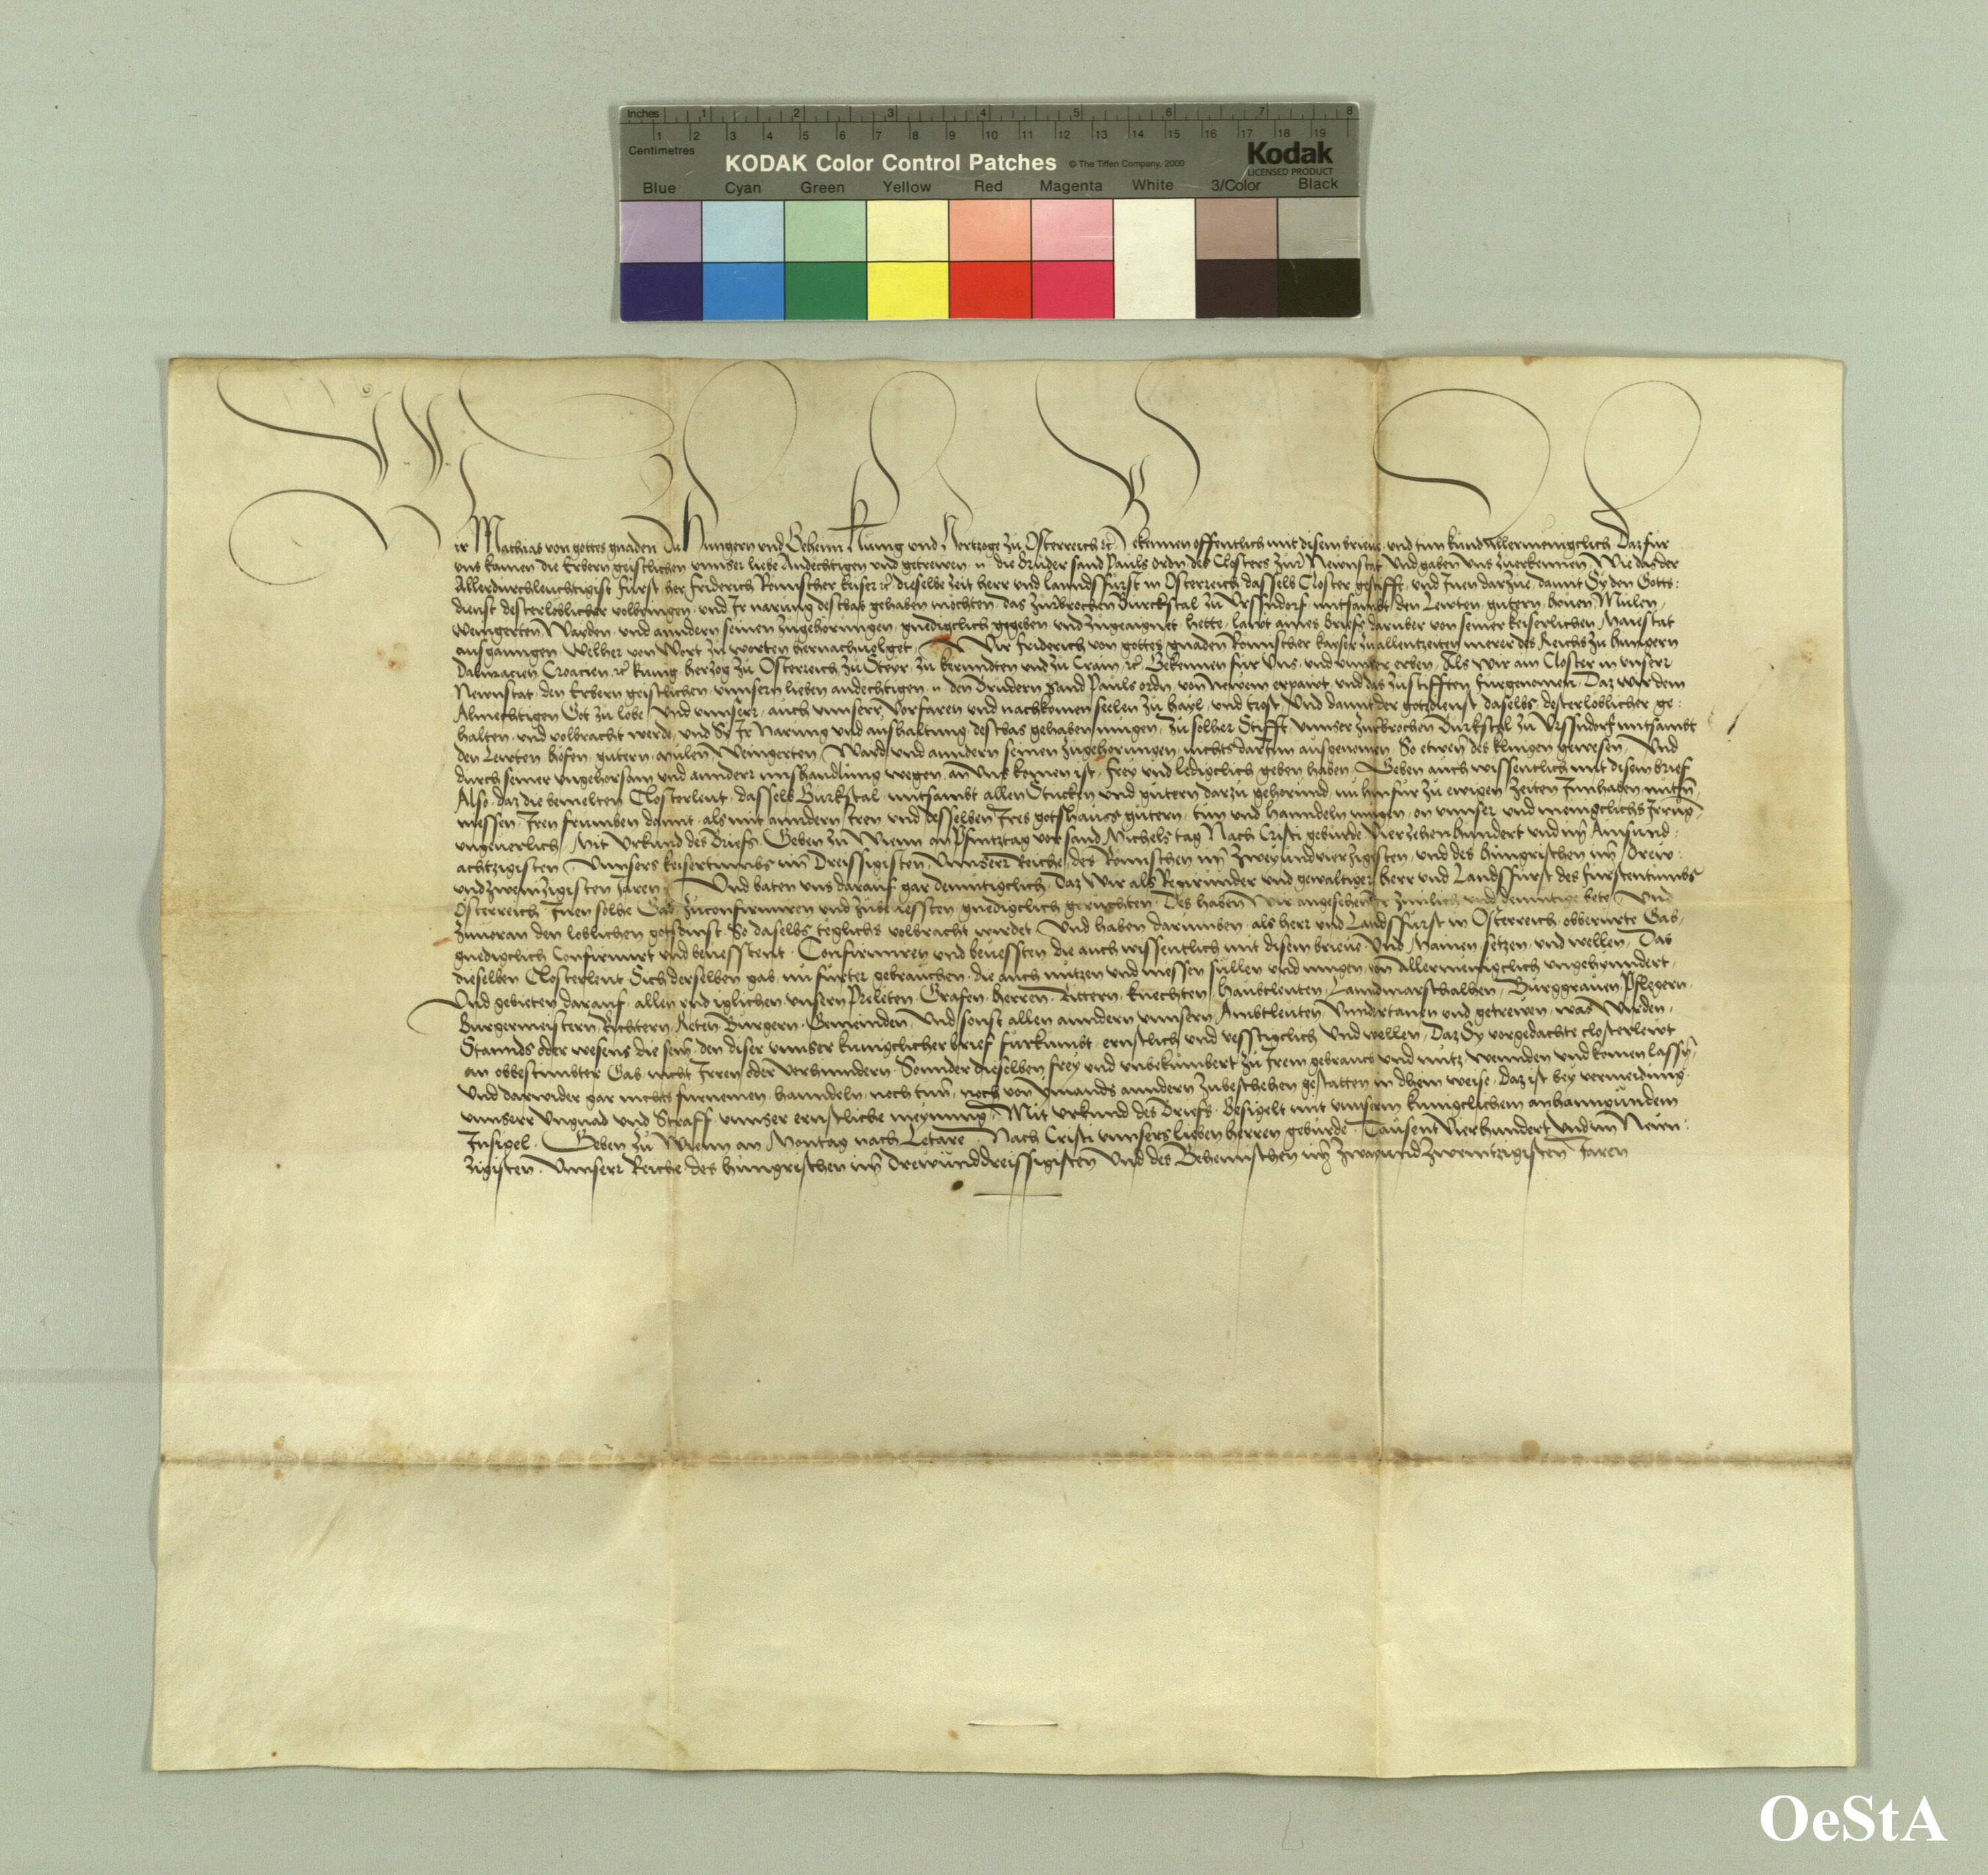 Inches 1 2 3 4 5 6 7 8
1 2 3 4 5 6 7 8 9 10 11 12 13 14 15 16 17 18 19
Centimetres
KODAK Color Control Patches © The Tiffen Company, 2000 Kodak
LICENSED PRODUCT
Blue Cyan Green Yellow Red Magenta White 3/Color Black
Wir Mathias von gottes gnaden Zu Hungern vnd Behem Kunig vnd Hertzoge zu Osterreich etc Bekennen offentlich mit disem brieue vnd tun kund allermeniglich Daz fur
vns kamen die Erbern geistlichen vnnser liebe Andechtigen vnd getrewen n die Bruder sand Pauls ordn des Closters zur Newnstat Vnd gaben vns zuerkennen Wie das der
Allerdurchleuchtigist Furst her Friderich Romischer keiser etc dieselbe zeit herr vnd lanndsfurst in Osterreich dasselb Closter gestifft vnd Inen darzue damit Sy den Gotts:
dienst dester loblicher volbringen vnd Ir narung destbas gehaben mochten das zurbrochen Burckstal zu Vrssndorf mitsambt den Lewten gutern houen Mulen
Weingerten Wayden vnd anndern seinen zugehorungen gnediglich gegeben vnd zugeaignet hette laut aines briefs daruber von seiner keiserlichen Maiestat
ausganngen Welher von Wort zu worten hernachuolget Wir Friderich von gottes gnaden Romischer kayser zuallentzeiten merer des Reichs zu hungern
Dalmacien Croacien etc kunig herzog zu Osterreich zu Steyr zu kernndten vnd zu Crain etc Bekennen fur Vns vnd vnnser erben Als wir am Closter in vnserr
Newnstat den Erbern geistlichen vnnsern lieben andechtigen n den Brudern sand Pauls ordn von newem erpawt vnd das zustifften furgenomen Daz wir dem
Almechtigen Got zu lobe Vnd vnnserr auch vnnserr Vorfaren vnd nachkomen seelen zu hayl vnd trost Vnd damit der gotzdienst daselbs dester loblicher ge:
halten vnd volbracht werde vnd Sy Ir Narung vnd aushaltung destbas gehaben mugen Zu selber Stifft vnnser zurbrochen Burkstal zu Vrssndorf mitsambt
den Lewten hofen gutern mulen Weingerten Wayd vnd anndern seinen zugehorungen nichts darInn ausgenomen So etwen des klingen gewesen Vnd
durch seiner vngehorsam vnd annderr mishandlung wegen an Vns komen ist frey vnd lediglich geben haben Geben auch wissentlich mit disem brief
Also daz die bemelten Closterleut dasselb Burkstal mitsambt allen Stucken vnd gutern darzu gehorund nu hinfur zu ewigen zeiten Innhaben nutzn
niessen Iren frumben damit als mit anndern Iren vnd desselben Ires gotshauss gutern tun vnd hanndeln mugen on vnnser vnd meniclichs Irrung
vngeuerlich Mit Vrkund des Briefs Geben zu Wienn an Phintztag vor sand Michels tag Nach Cristi geburde Vierzehenhundert vnd im Ainsund:
achtzigisten Vnnsers keisertumbs im Dreissigisten Vnnserr Reiche des Romischen im Zweyundvierzigisten vnd des hungrischen im Drew:
undzwenzigisten Jaren Vnd baten vns darauf gar demutiglich Daz Wir als Regirunder vnd gewaltiger herr vnd Landsfurst des furstentumbs
Osterreich Inen solhe Gab zuconfirmiren vnd zubeuessten gnediglich geruchten Des haben Wir angesehen Ir zimlich vnd demutige bete Vnd
zuuoran den loblichen gotsdinst So daselbs teglichs volbracht wirdet Vnd haben darumben als herr vnd Landsfurst in Osterreich obberurte Gab
gnediglich Confirmirt vnd beuesstent Confirmiren vnd beuessten die auch wissentlich mit disem brieue Vnd Mainen setzen vnd wellen Das
dieselben Closterleut Sich derselben gab nu furter gebrauchen die auch nutzen vnd niessen sullen vnd mugen von Allermeniglich vngehynndert
Vnd gebieten darauf allen vnd iglichen vnsern Preleten Grafen herren Rittern knechten haubtleuten Lanndmarschalhen Burggrauen Pflegern
Burgermeistern Richtern Reten Burgern Gemeinden Vnd sonst allen anndern vnnsern Ambtleuten Vnndertanen vnd getrewen was Wirden
Stannds oder wesens die sein den diser vnnser kuniglicher brief furkumbt ernstlich vnd vesstiglich Vnd wellen Daz Sy vorgedachte closterlewt
an obbestimbter Gab nicht Irren oder verhinndern Sonnder dieselben frey vnd vnbekumbert zu Irem gebrauch vnd nutz wennden vnd komen lassn
Vnd darwider gar nichts furnemen hanndeln noch tun noch von Ymands anndern zubeschehen gestatten in dhein weise Daz ist bey vermeidung
vnnserr Vngnad vnd Straff vnnser ernstliche meynung Mit vrkund des Briefs Besigelt mit vnnserm kuniglichem anhanngundem
Insigel Geben zu Wienn an Montag nach Letare Nach Cristi vnnsers lieben herren geburde Tausent Vierhundert Vnd im Neun:
zigisten Vnnserr Reiche des hungrischen im Drewunddreissigisten Vnd des Behemischen im Zwayundzwentzigisten Jaren
OeStA